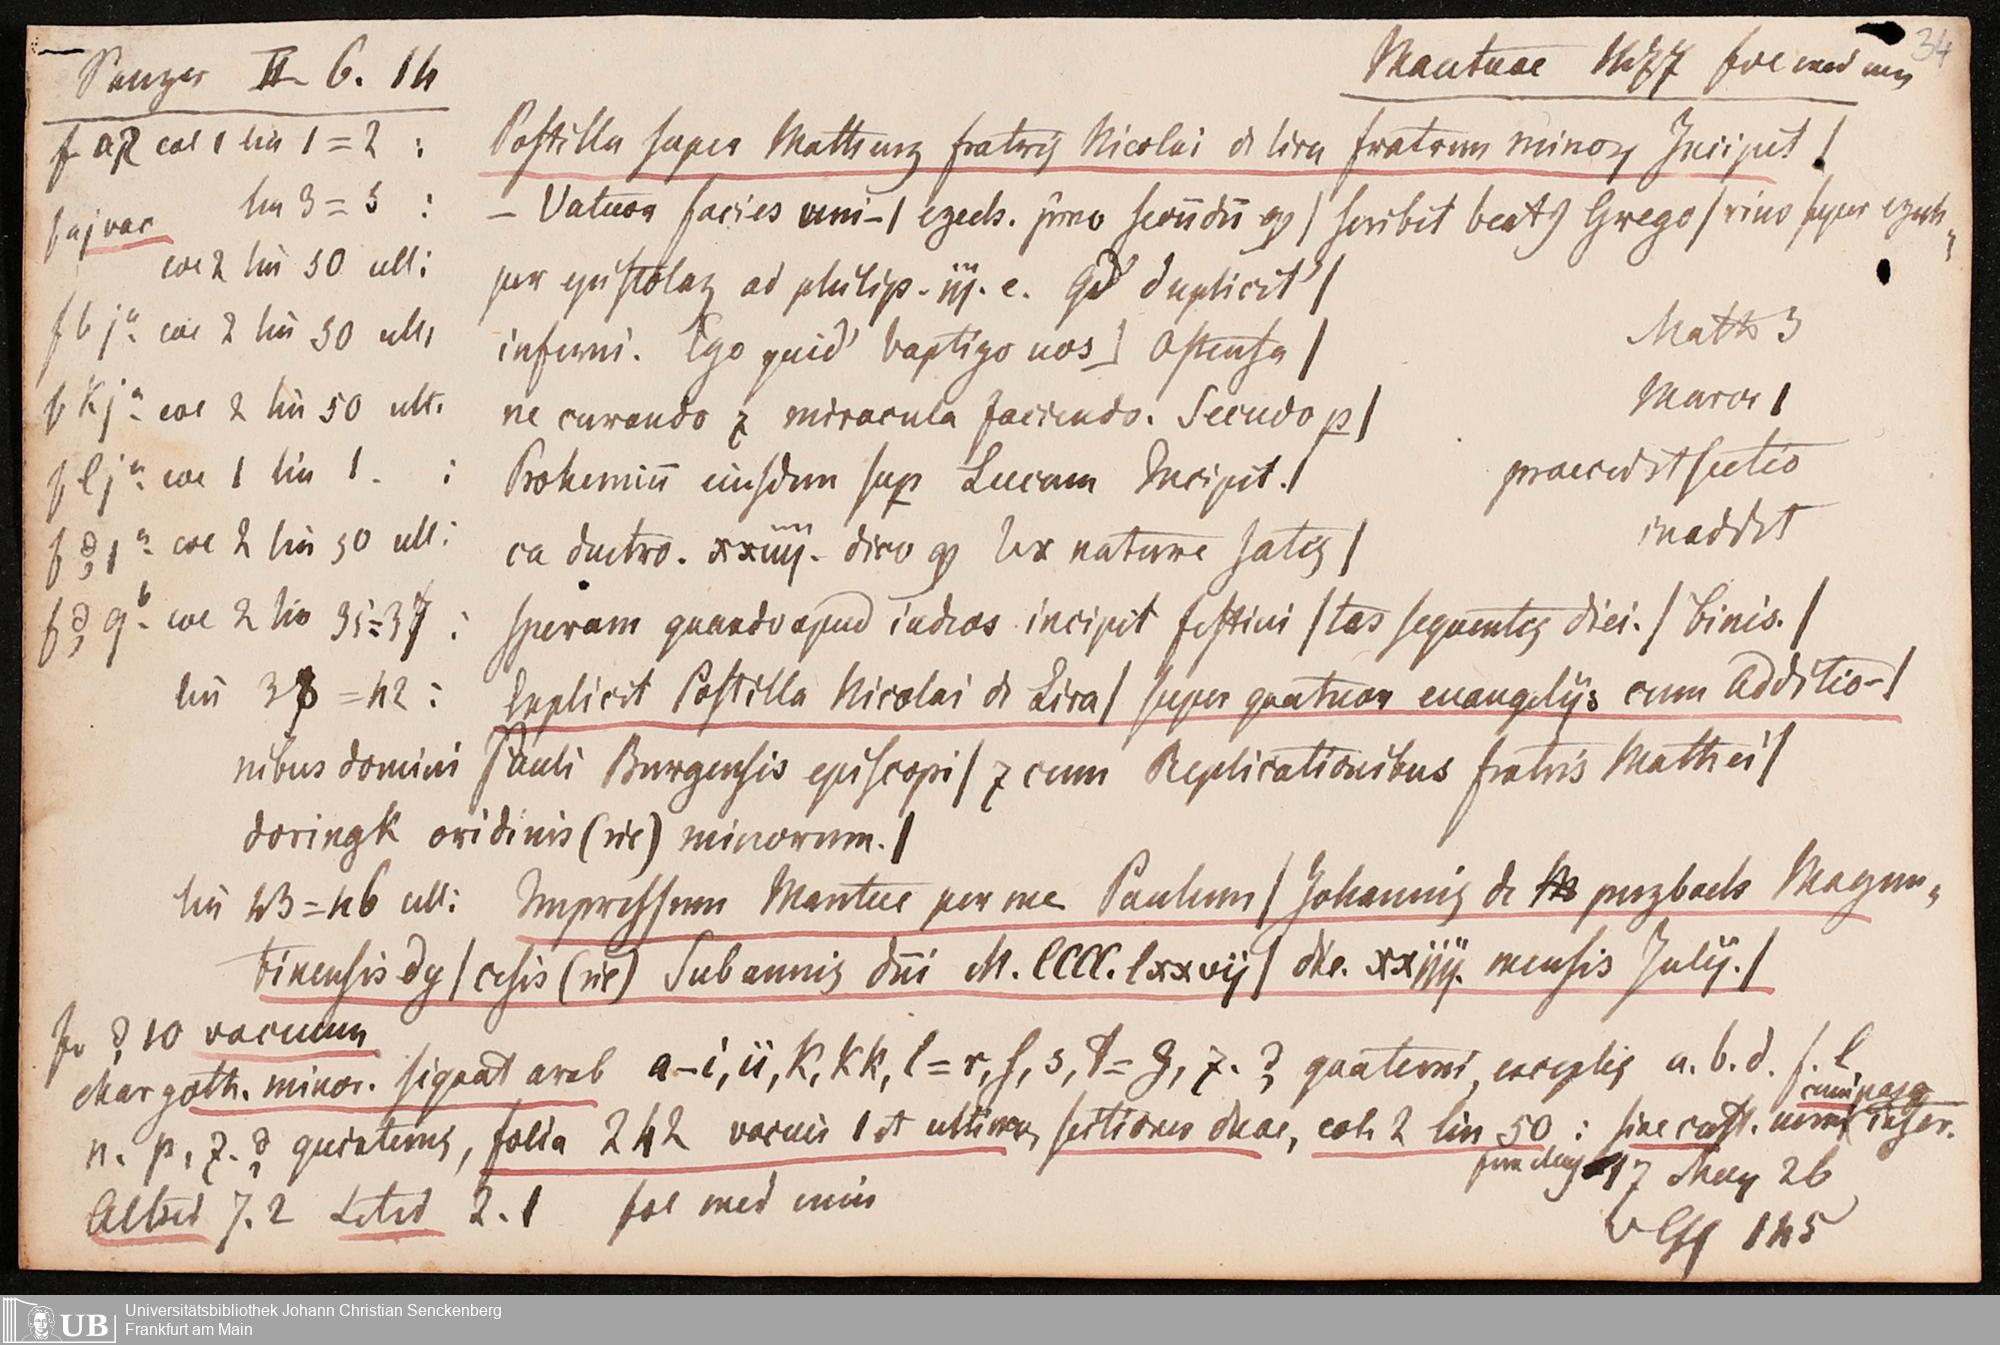 34
Panzer II. 6. 14 Mantuae 1477 fol med min
f a2 col 1 lin 1=2 : Postilla super Matheuz fratris Nicolai de lira fratrum minorum Incipit /
f aj vac lin 3=5 : – Vatuor facies uni-/ ezech. primo secūdū / scribit beat9 Grego / rius super ezech-
col 2 lin 50 ult: per epistolaz ad philip. iij. c. duplicit' /
f b j a col 2 lin 50 ult: inferni. Ego quid' baptizo uos ] Ostensa / Math 3
f k j a col 2 lin 50 ult. ne curando z miracula faciendo. Secundo p / Marci 1
f l j a col 1 lin 1. : Prohemiū eiusdem sup Lucam Incipit. / praecedit sectio
col 2 lin 50 ult: ca duetro. xxiiij. dico lex nature / inaddit
col 2 lin 35=37 : speram quando apud iudeos incipit festiui / tas sequentis diei. / binis. /
lin 38 =42 : Explicit Postilla Nicolai de Lira / super quatuor euangelijs cum Additio- /
nibus domini Pauli Burgensis episcopi / z cum Replicationibus fratris Mathei /
doringk oridinis (sic) minorum. /
lin 43=46 ult: Impressum Mantue per me Paulum / Johannis de puzbach Magun-
tinensis dy / cesis (sic) Sub annis dn̄i M. CCCC. lxxvij / die. xxiiij. mensis Julij. /
10 vacuum
char goth. minor. signat arab a–i, ii, k, kk, l=r, ſ, s, quaterni, exceptis a. b. d. f. l.
n. p, z. quinternis, folia 242 vacuis 1 et ultimo, sectiones duae, col. 2 lin 50 : sine cust. num
17 May 26
Altred 7.2 Leted 2.1 fol med min
145
UB
Universitätsbibliothek Johann Christian Senckenberg
Frankfurt am Main